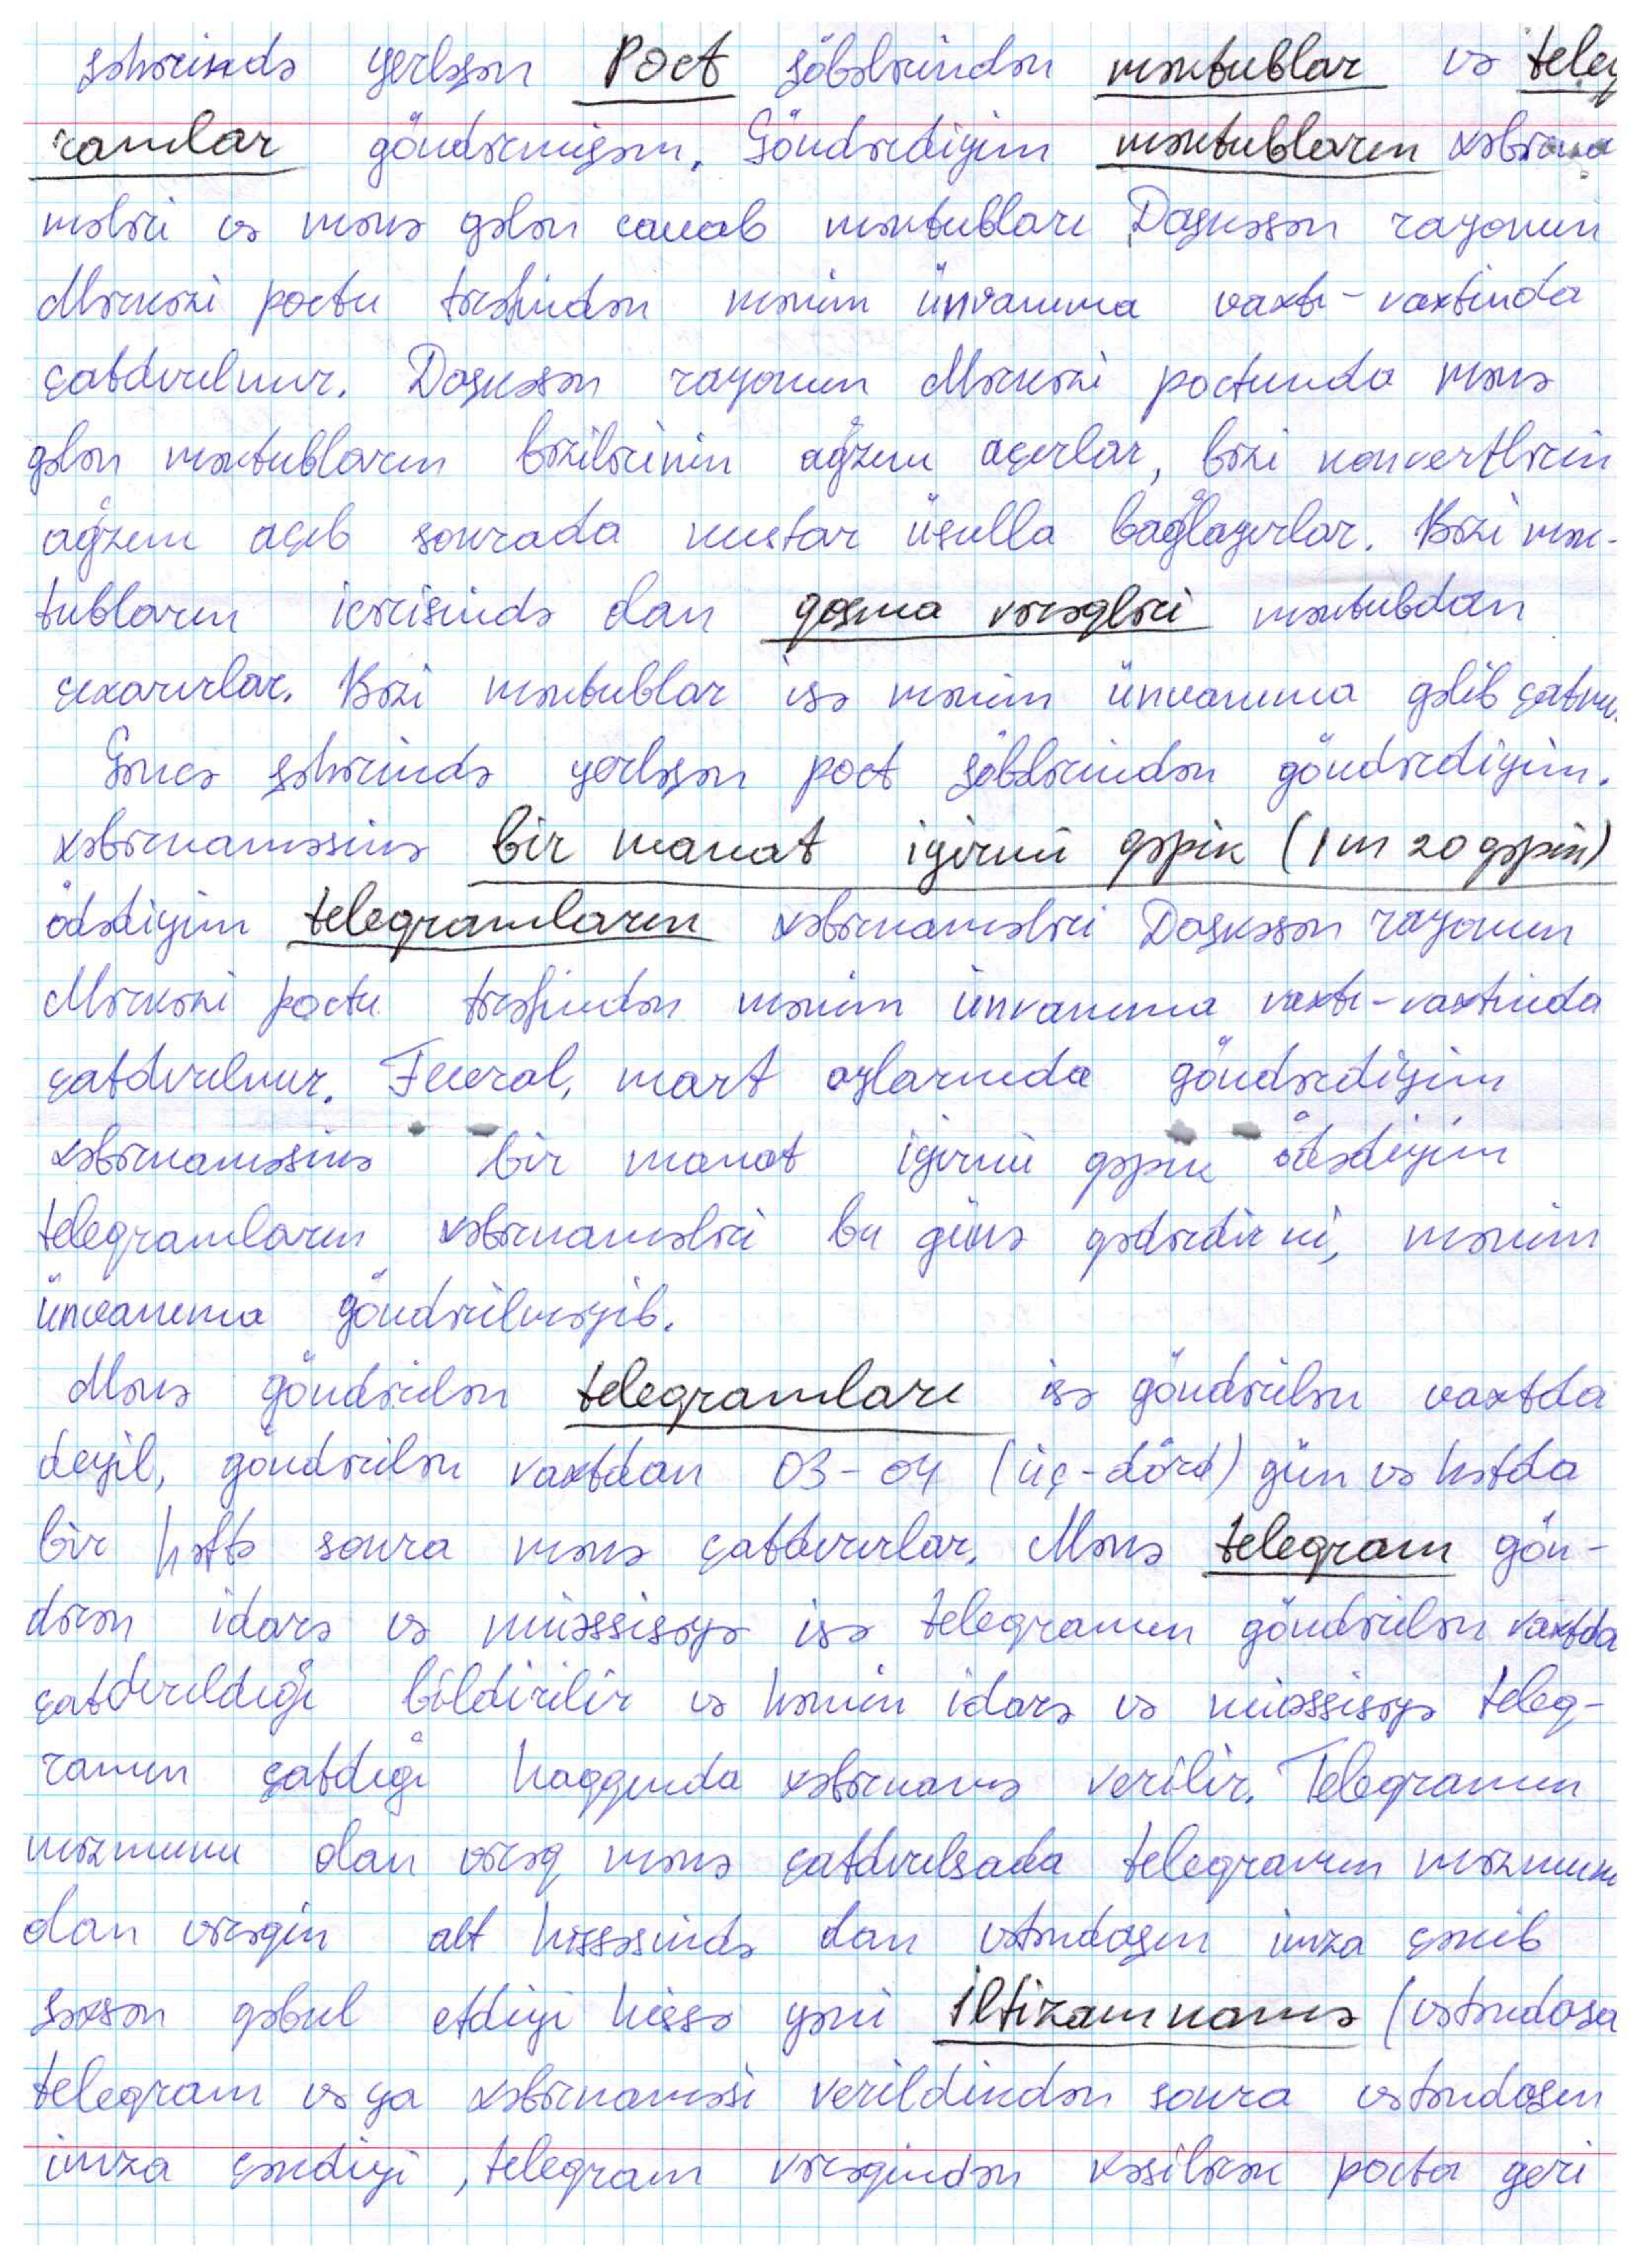 şəhərində yerləşən Poçt şöbələrindən məktublar və teleq
ramlar göndərmişəm. Göndərdiyim məktubların xəbərna
mələri və mənə gələn cavab məktubları Daşkəsən rayonun
Mərkəzi poçtu tərəfindən mənim ünvanıma vaxtı-vaxtında
çatdırılmır. Daşkəsən rayonun Mərkəzi poçtunda mənə
gələn məktubların bəzilərinin ağzını açırlar, bəzi konvertlərin
ağzını açıb sonrada kustar üsulla bağlayırlar. Bəzi mək-
tubların içərisində olan qoşma vərəqləri məktubdan
çıxarırlar. Bəzi məktublar isə mənim ünvanıma gəlib çatmı.
Gəncə şəhərində yerləşən poçt şöbələrindən göndərdiyim.
xəbərnaməsinə bir manat iyirmi qəpik (1 m 20 qəpik)
ödədiyim telegramların xəbərnamələri Daşkəsən rayonun
Mərkəzi poçtu tərəfindən mənim ünvanıma vaxtı-vaxtında
çatdırılmır. Fevral, mart aylarında göndərdiyim
xəbərnaməsinə bir manat iyirmi qəpik ödədiyim
teleqramların xəbərnamələri bu günə qədərdir ki, mənim
ünvanıma göndərilməyib.
Mənə göndərilən teleqramları isə göndərilən vaxtda
deyil, göndərilən vaxtdan 03-04 (üç-dörd) gün və hətda
bir həftə sonra mənə çatdırırlar. Mənə teleqram gön-
dərən idarə və müəssisəyə isə teleqramın göndərilən vaxtda
çatdırıldığı bildirilir və həmin idarə və müəssisəyə teleq-
ramın çatdığı haqqında xəbərnamə verilir. Teleqramın
məzmunu olan vərəq mənə çatdırılsada teleqramın məzmunu
olan vərəqin alt hissəsində olan vətəndaşın imza çəkib
şəxsən qəbul etdiyi hissə yəni iltizamnamə (vətəndaşa
teleqram və ya xəbərnaməsi verildindən sonra vətəndaşın
imza çəkdiyi, teleqram vərəqindən kəsilərək poçta geri